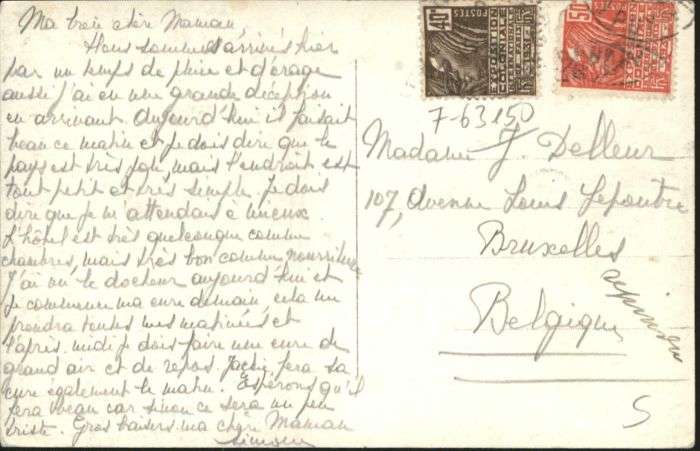 Ma très chère Maman
Nous sommes arrivés hier
par un temps de pluie et d'orage
aussi j'ai eu une grande déception
en arrivant aujourd'hui il faisait
beau ce matin et je dois dire que le
pays est très joli, mais l'endroit est
tout petit et très simple je dois
dire que je m'attendais à mieux.
L'hôtel est très quelconque comme
chambres, mais très bon comme nourriture
J'ai vu le docteur aujourd'hui et
je commence ma cure demain, cela me
prendra toutes mes matinées et
l'après-midi je dois faire une cure de
grand air et de repos. fera sa
cure également le matin. Espérons qu'il
fera beau car sinon ce sera un peu
triste. Gros baisers ma chère Maman
Simone
40c
POSTES
EXPOSITION
COLONIALE
INTERNATIONALE
50c
7-63150
Madame J. Delleur
107, Avenue Louis Lepoutre
Bruxelles
Belgique
S